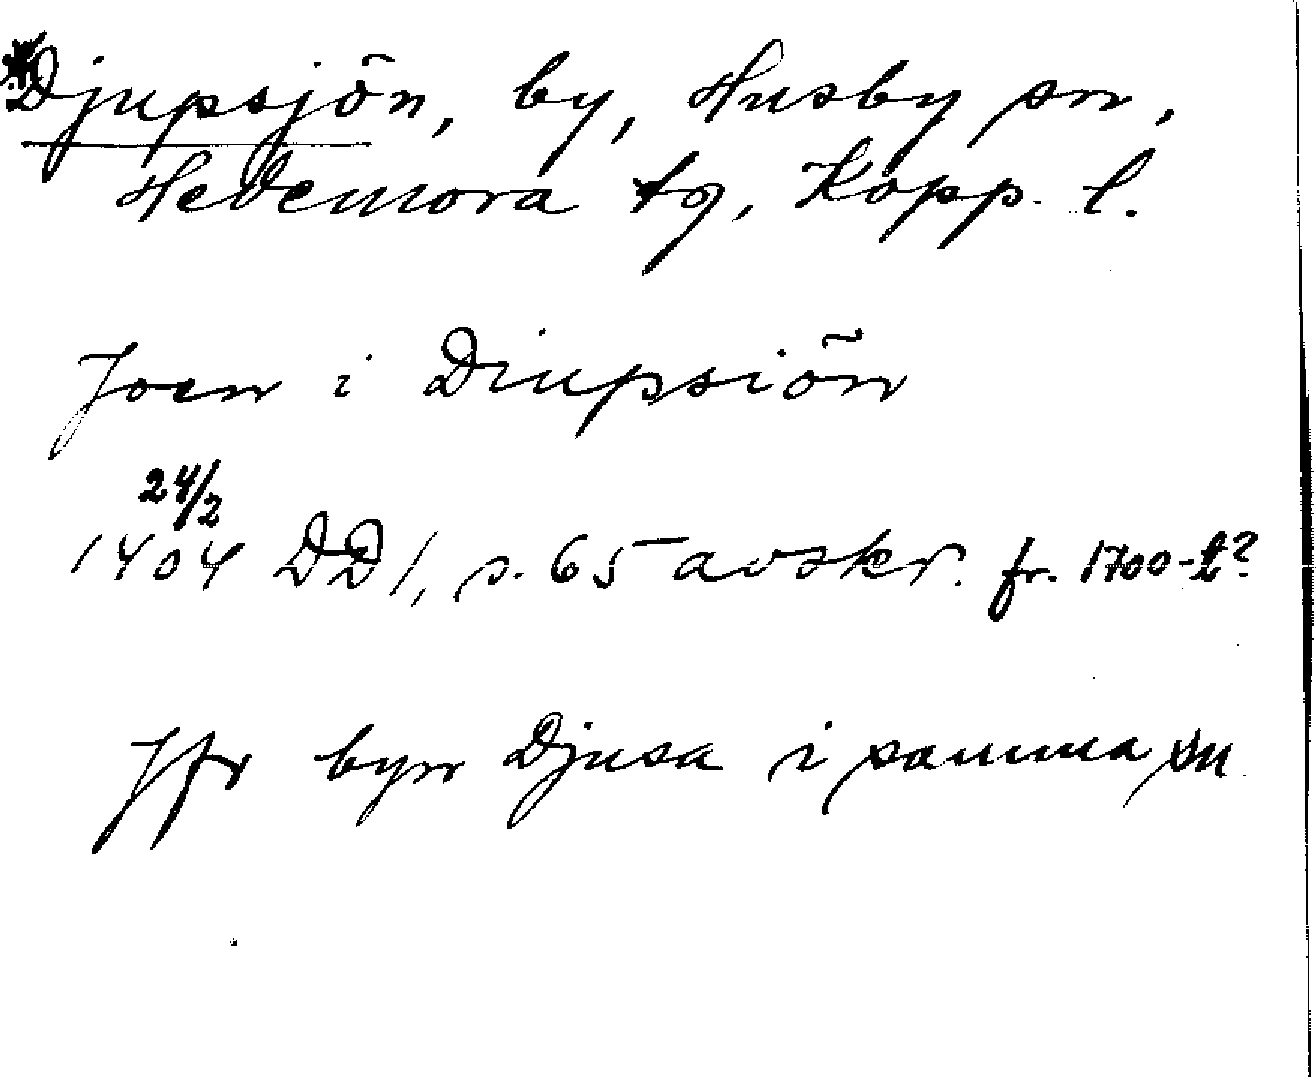 *Djupsjön, by, Husby sn,
Hedemora tg, Kopp. l.
Joen i Diupsiön
24/2
1404 DD 1, s. 65 avskr. fr. 1700-t?
Jfr byn Djusa i samma sn